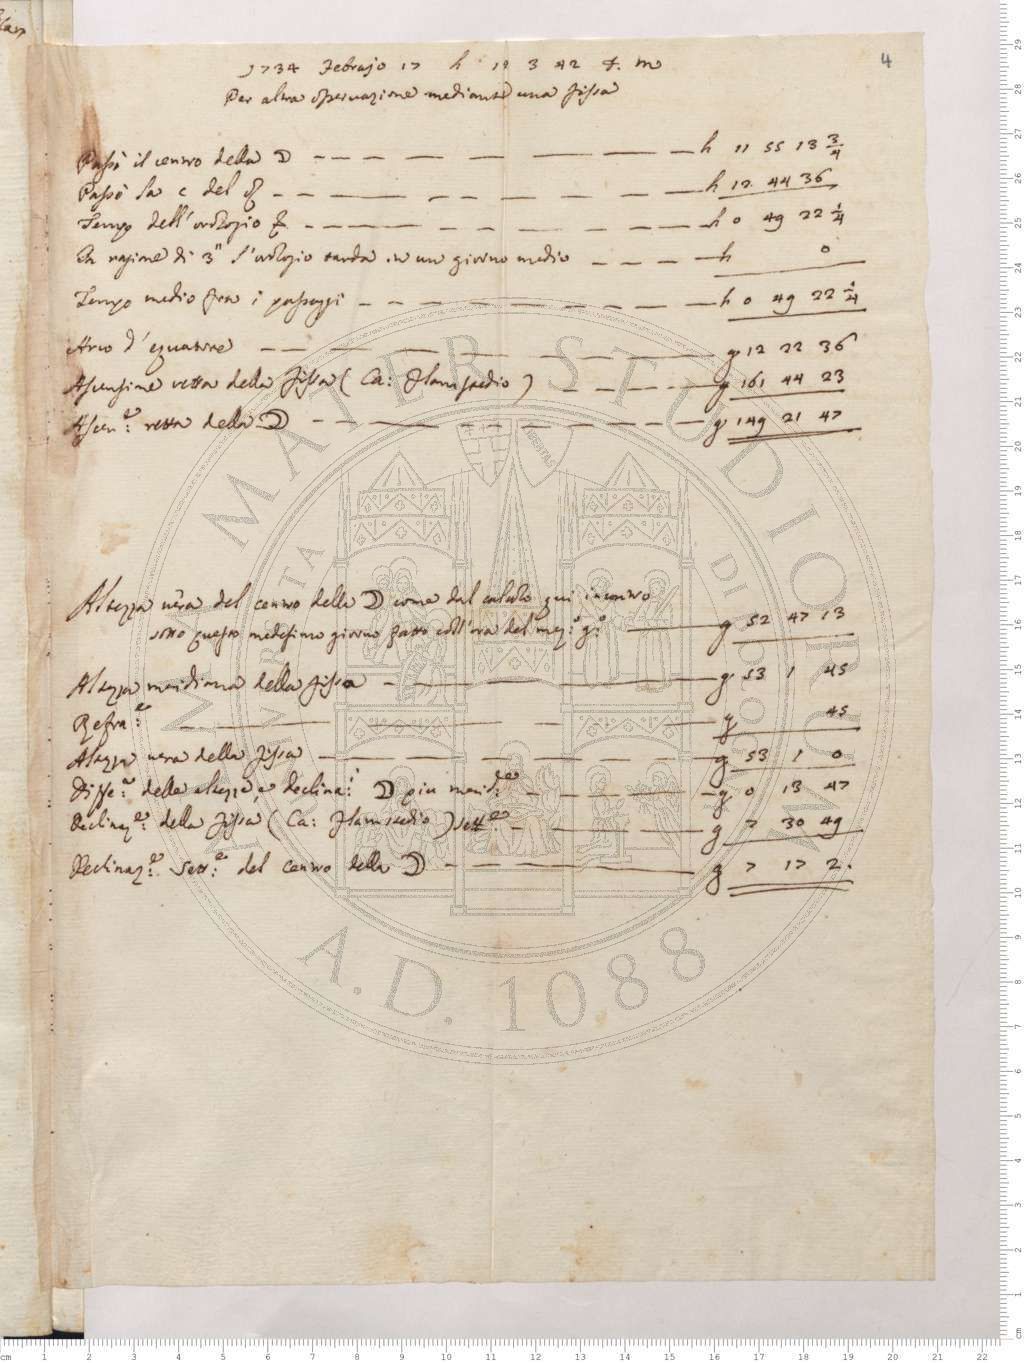 4
1734 Febrajo 17 h 12 3 42 t. m
Per altra osservazione mediante una fissa
Passò il centro della ☽ h 11 55 13 3/4
Passò la c del ♌ h 12 44 36
Tempo dell'orologio h 0 49 22 1/4
In ragione di 3" l'orologio tarda in un giorno medio h 0
Tempo medio fra i passaggi h 0 49 22 1/4
Arco d'equatore g 12 22 36
Ascensione retta della fissa (Ca: Flamstedio) g 161 44 23
Ascen.e: retta della ☽ g 149 21 47
Altezza vera del centro della ☽ come dal calcolo qui incontro
sotto questo medesimo giorno fatto coll'ora del mez.o g.o g 52 47 13
Altezza meridiana della fissa g 53 1 45
Refra.e: g 45
Altezza vera della fissa g 53 1 0
Diffe.a: delle altezze, e declina.i: ☽ piu merid.le g 0 13 47
Declinaz.e: della fissa (Ca: Flamstedio) sett.e g 7 30 49
Declinaz.e: Sett.e: del centro della ☽ g 7 17 2.
ALMA MATER STUDIORUM
A.D. 1088